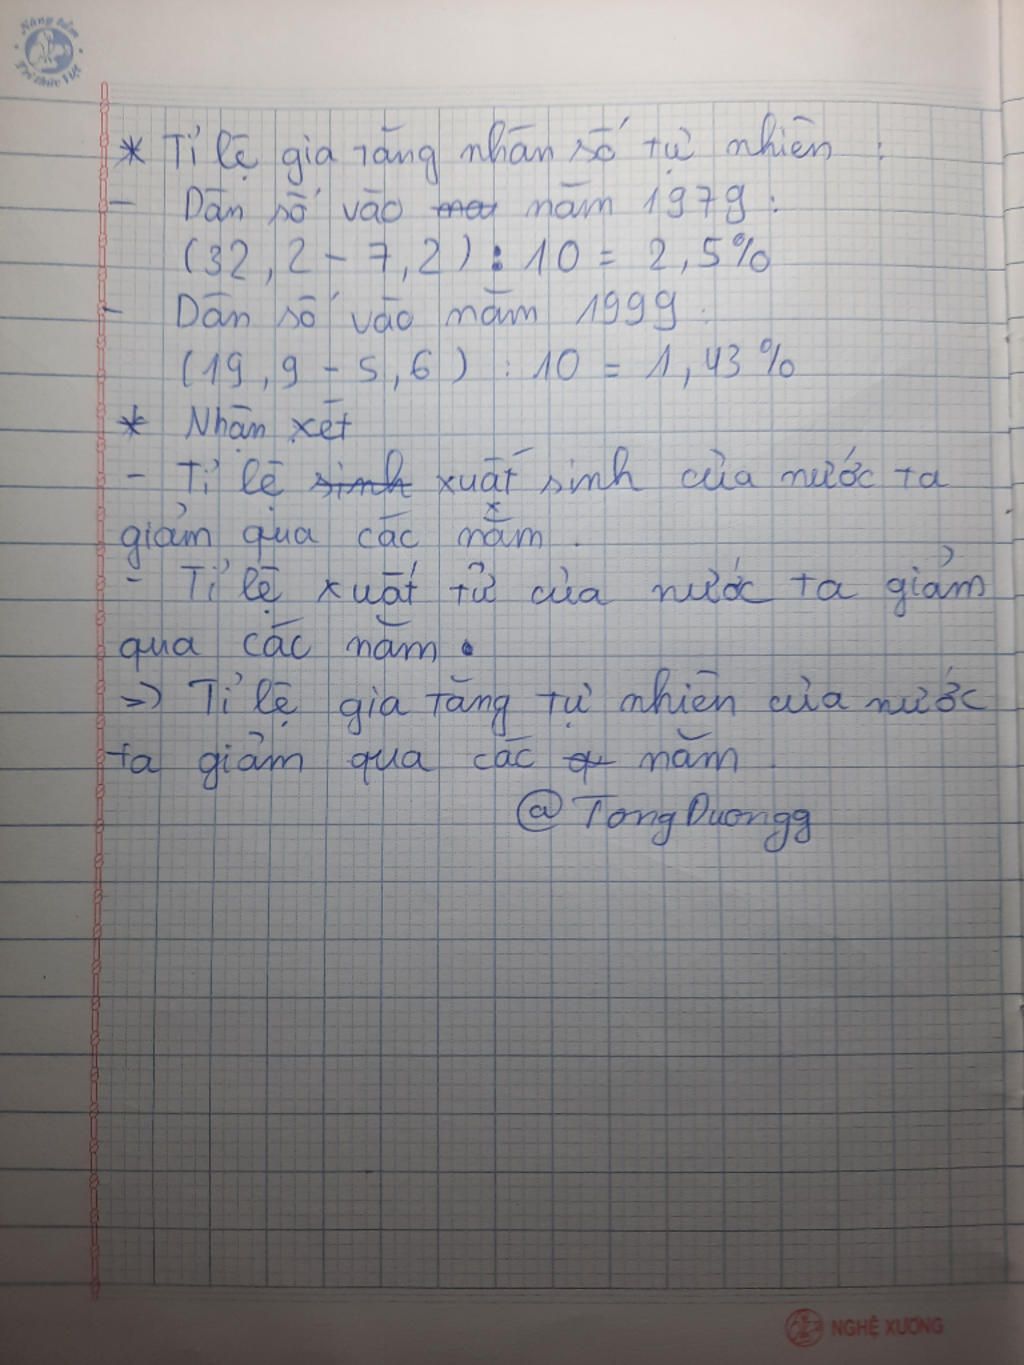 Nâng tầm
Tri thức Việt
* Tỉ lệ gia tăng nhân số tự nhiên :
- Dân số vào năm 1979 :
(32,2 - 7,2) : 10 = 2,5%
- Dân số vào năm 1999 :
(19,9 - 5,6) : 10 = 1,43%
* Nhận xét
- Tỉ lệ sinh xuất sinh của nước ta
giảm qua các năm .
- Tỉ lệ xuất tử của nước ta giảm
qua các năm .
=> Tỉ lệ gia tăng tự nhiên của nước
ta giảm qua các năm .
@TongDuongg
NGHỆ XƯƠNG